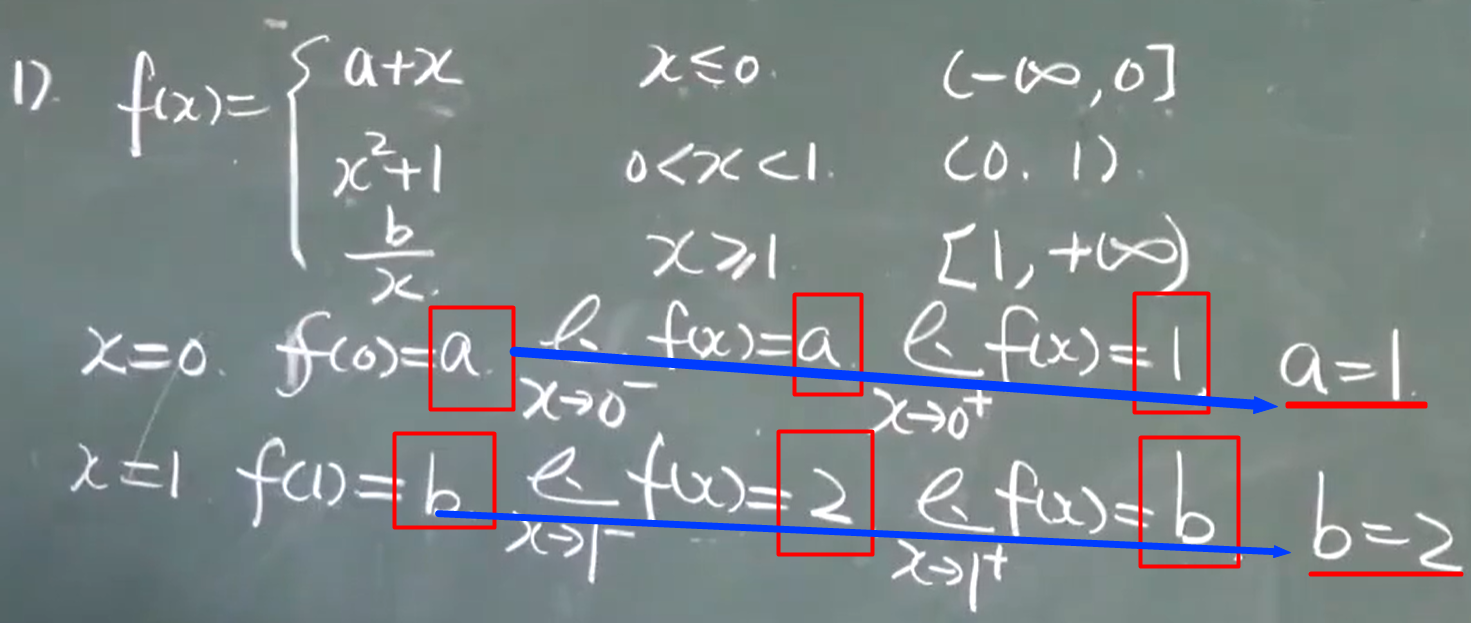 1). f(x)= { a+x x≤0. (-∞,0]
x²+1 0<x<1. (0.1).
b/x. x≥1. [1,+∞)
x=0. f(0)=a. lim x→0⁻ f(x)=a. lim x→0⁺ f(x)=1. a=1.
x=1. f(1)=b. lim x→1⁻ f(x)=2 lim x→1⁺ f(x)=b. b=2